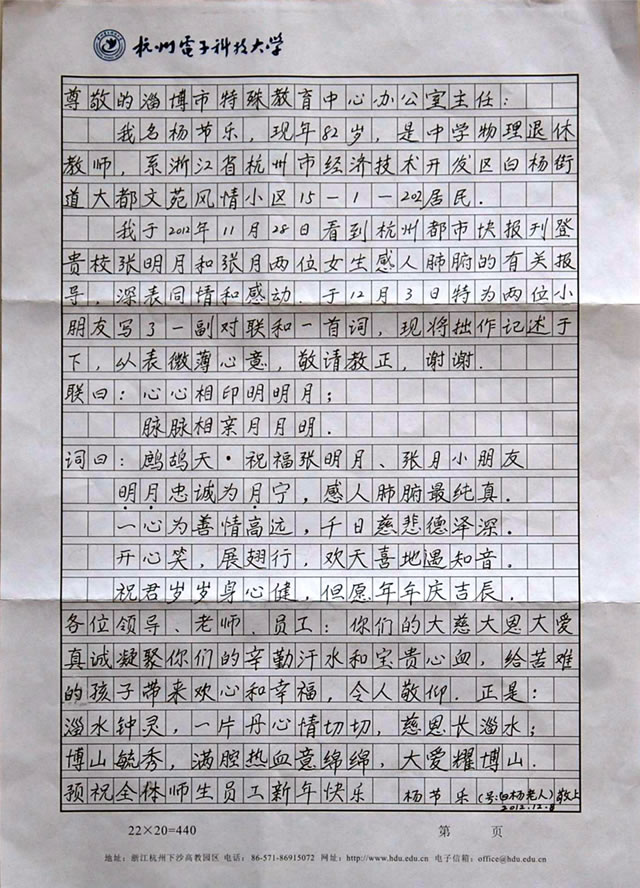 杭州电子科技大学
尊敬的淄博市特殊教育中心办公室主任：
我名杨节乐，现年82岁，是中学物理退休
教师，系浙江省杭州市经济技术开发区白杨街
道大都文苑风情小区15-1-202居民.
我于2012年11月28日看到杭州都市快报刊登
贵校张明月和张月两位女生感人肺腑的有关报
导，深表同情和感动.于12月3日特为两位小
朋友写了一副对联和一首词，现将拙作记述于
下，从表微薄心意，敬请教正，谢谢.
联曰：心心相印明明月；
脉脉相亲月月明.
词曰：鹧鸪天·祝福张明月、张月小朋友
明月忠诚为月宁，感人肺腑最纯真.
一心为善情高远，千日慈悲德泽深.
开心笑，展翅行，欢天喜地遇知音.
祝君岁岁身心健，但愿年年庆吉辰.
各位领导、老师、员工：你们的大慈大恩大爱
真诚凝聚你们的辛勤汗水和宝贵心血，给苦难
的孩子带来欢心和幸福，令人敬仰.正是：
淄水钟灵，一片丹心情切切，慈恩长淄水；
博山毓秀，满腔热血意绵绵，大爱耀博山.
预祝全体师生员工新年快乐 杨节乐(号:白杨老人)敬上
2012.12.8
22×20=440 第 页
地址：浙江杭州下沙高教园区 电话：86-571-86915072 网址：http://www.hdu.edu.cn 电子信箱：office@hdu.edu.cn